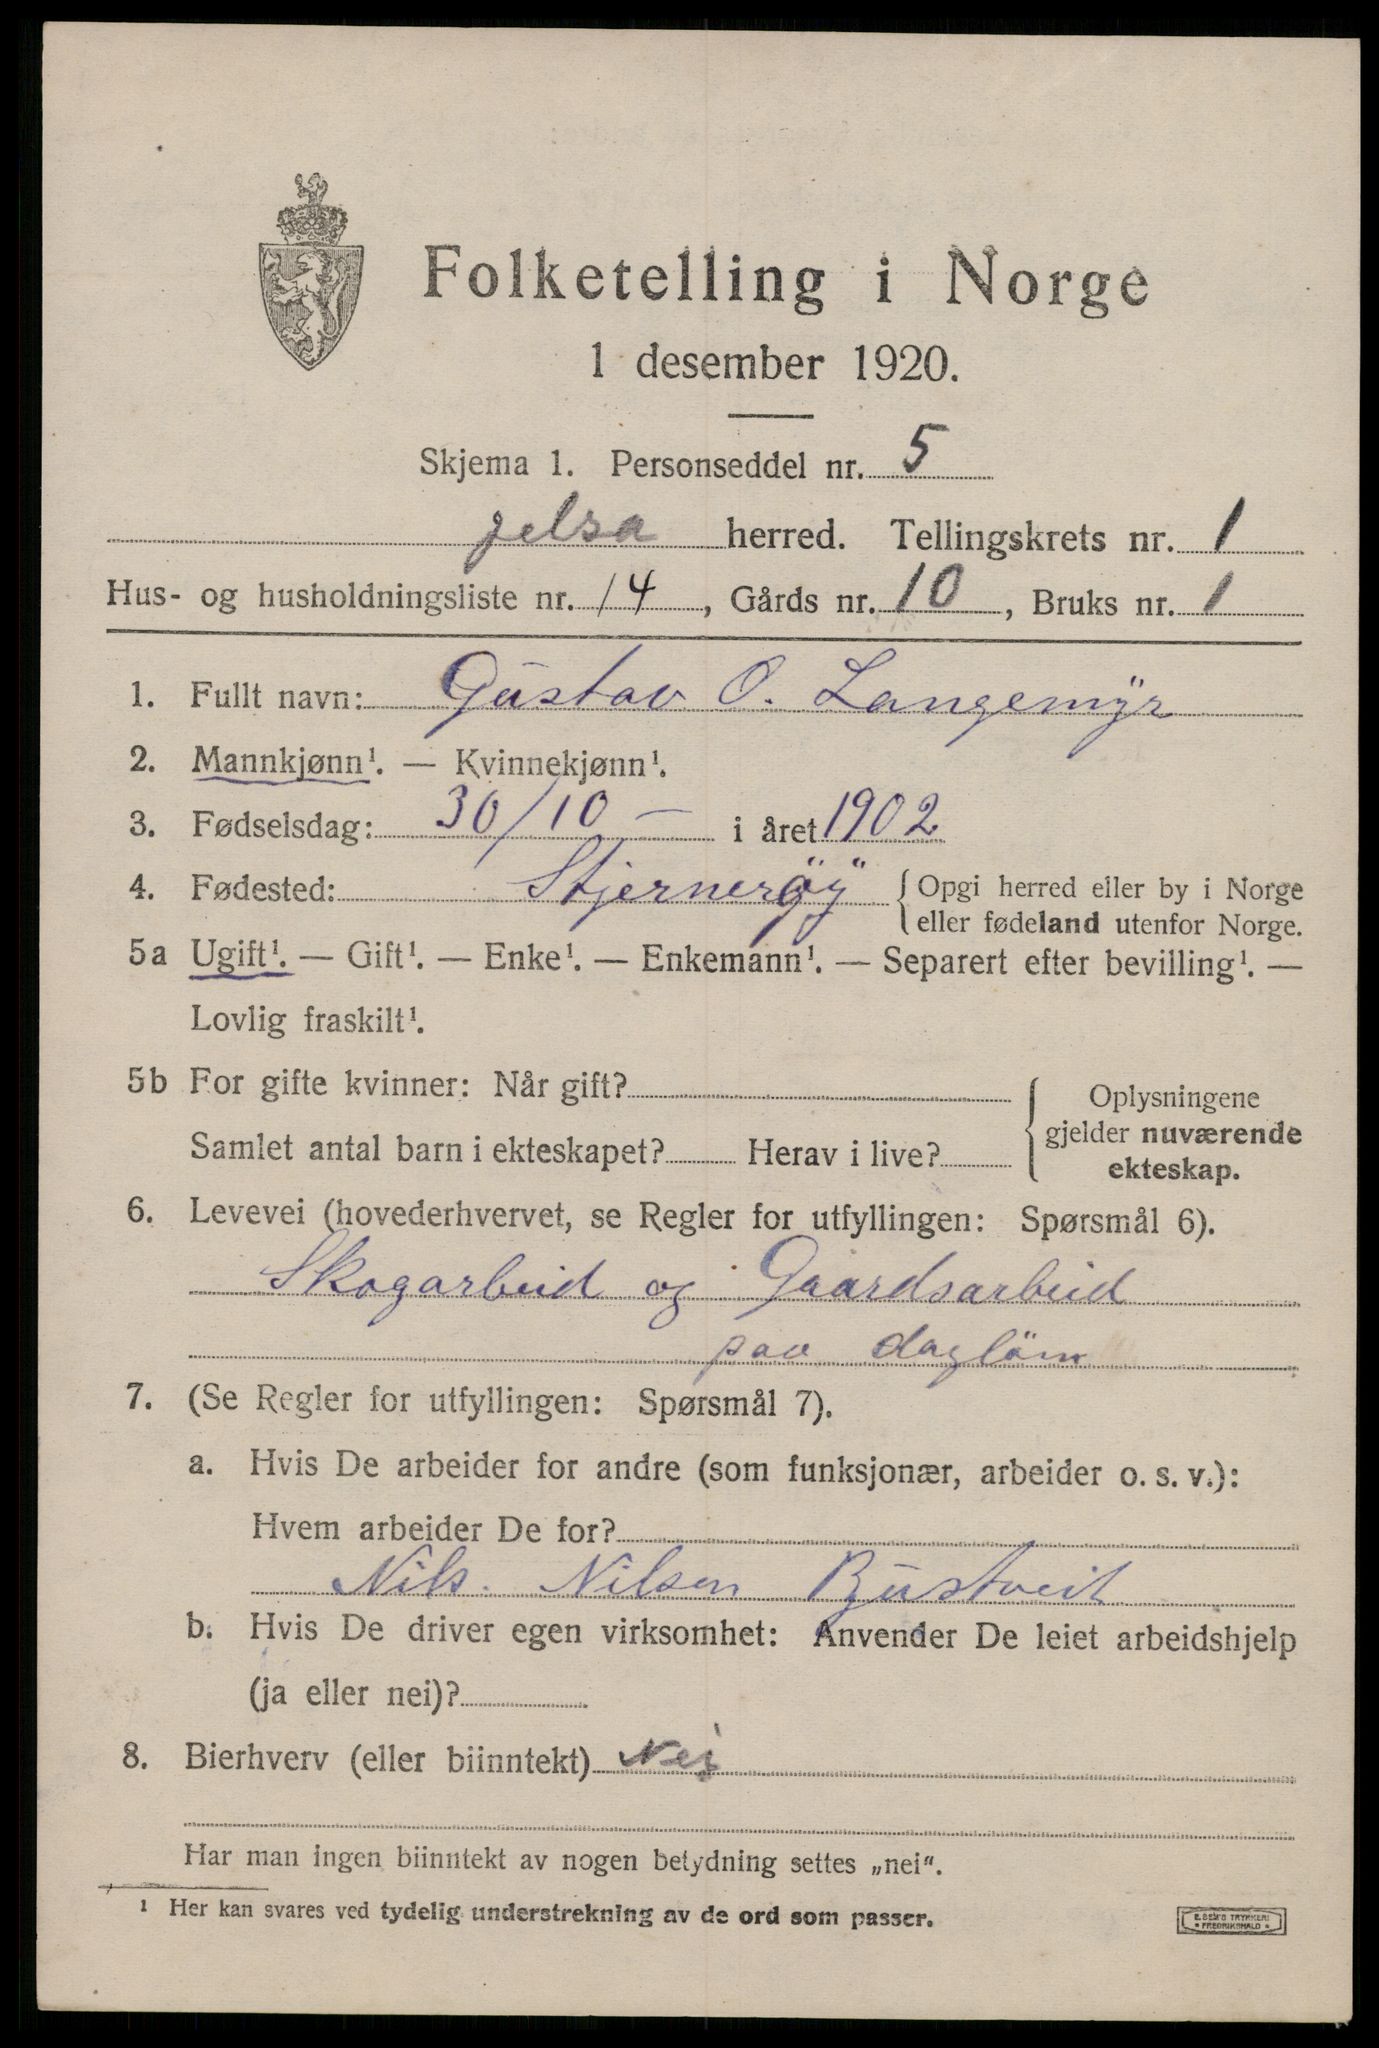 Folketelling i Norge
1 desember 1920.
Skjema 1. Personseddel nr. 5
Jelsa herred. Tellingskrets nr. 1
Hus- og husholdningsliste nr. 14, Gårds nr. 10, Bruks nr. 1
1. Fullt navn: Gustav O. Langemyr
2. Mannkjønn¹. — Kvinnekjønn¹.
3. Fødselsdag: 30/10 — i året 1902
4. Fødested: Stjernerøy { Opgi herred eller by i Norge
eller fødeland utenfor Norge.
5a Ugift¹. — Gift¹. — Enke¹. — Enkemann¹. — Separert efter bevilling¹. —
Lovlig fraskilt¹.
5b For gifte kvinner: Når gift?
Samlet antal barn i ekteskapet? Herav i live?
Oplysningene
gjelder nuværende
ekteskap.
6. Levevei (hovederhvervet, se Regler for utfyllingen: Spørsmål 6).
Skogarbeid og Gaardsarbeid
paa daglön
7. (Se Regler for utfyllingen: Spørsmål 7).
a. Hvis De arbeider for andre (som funksjonær, arbeider o. s. v.):
Hvem arbeider De for?
Nils. Nilsen
b. Hvis De driver egen virksomhet: Anvender De leiet arbeidshjelp
(ja eller nei)?
8. Bierhverv (eller biinntekt) Nei
Har man ingen biinntekt av nogen betydning settes „nei“.
¹ Her kan svares ved tydelig understrekning av de ord som passer.
E. SEM'S TRYKKERI
FREDRIKSHALD